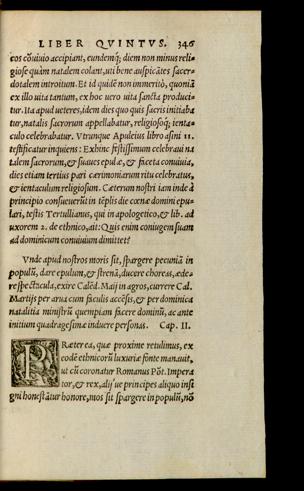 LIBER QVINTVS. 346
eos cõuiuio accipiant, eundemq́; diem non minus reli-
giose quàm natalem colant, uti bene auspicãtes sacer-
dotalem introitum. Et id quidẽ non immeritò, quoniã
ex illo uita tantum, ex hoc uero uita sancta produci-
tur. Ita apud ueteres, idem dies quo quis sacris initiaba
tur, natalis sacrorum appellabatur, religiosoq́; ienta-
culo celebrabatur. Vtrunque Apuleius libro asini 11.
testificatur inquiens: Exhinc festissimum celebraui na
talem sacrorum, & suaues epulæ, & faceta conuiuia,
dies etiam tertius pari cærimoniarum ritu celebratus,
& ientaculum religiosum. Cæterum nostri iam inde à
principio consueuerũt in tẽplis die cœnæ domini epu-
lari, testis Tertullianus, qui in apologetico, & lib. ad
uxorem 2. de ethnico, ait: Quis enim coniugem suam
ad dominicum conuiuium dimittet?
Vnde apud nostros moris sit, spargere pecuniã in
populũ, dare epulum, & strenã, ducere choreas, æde-
re spectacula, exire Calẽd. Maij in agros, currere Cal.
Martijs per arua cum faculis accẽsis, & per dominica
natalitia ministrũ quempiam facere dominũ, ac ante
initium quadragesimæ induere personas. Cap. II.
PRæterea, quæ proxime retulimus, ex
eodẽ ethnicorũ luxuriæ fonte manauit,
ut cũ coronatur Romanus Põt. Impera
tor, & rex, alijsue principes aliquo insi
gni honestãtur honore, mos sit spargere in populũ, nõ